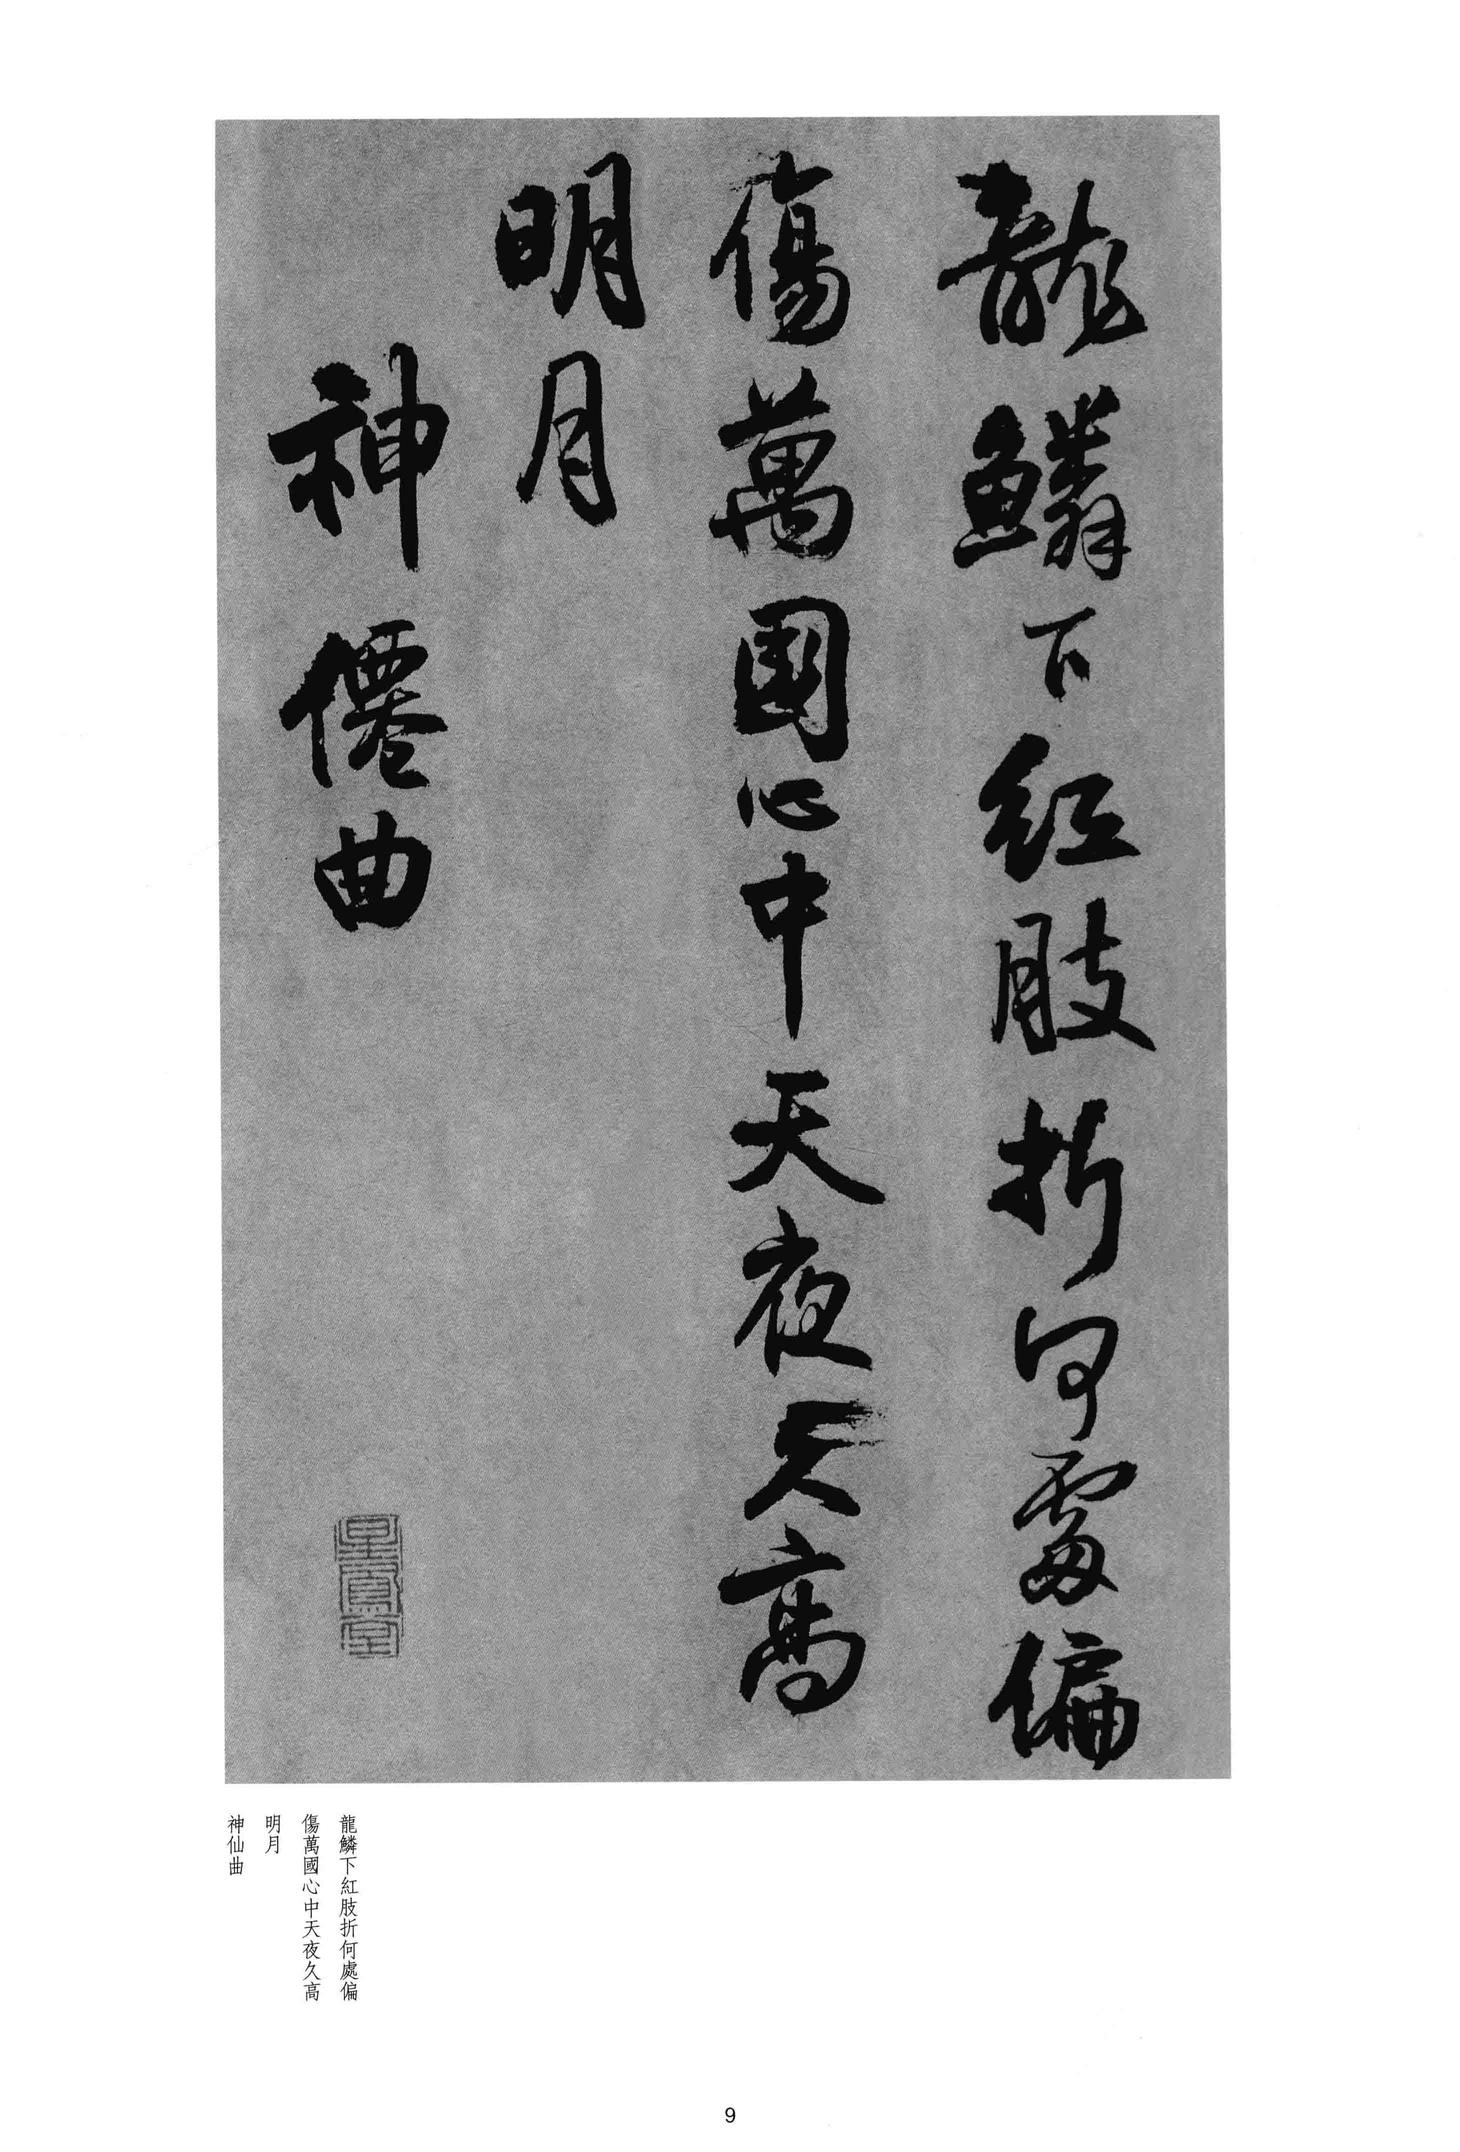 龍鱗下紅肢折何處偏
傷萬國心中天夜久高
明月
神僊曲
龍鱗下紅肢折何處偏
傷萬國心中天夜久高
明月
神仙曲
9